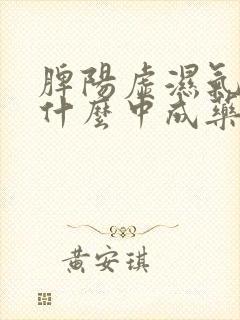 脾陽虛濕氣
什麼中成藥
黃安琪